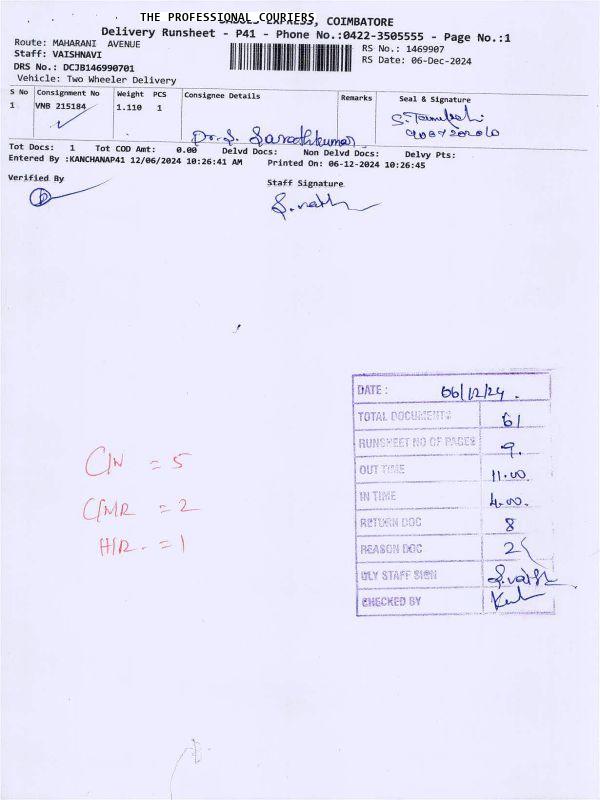 THE PROFESSIONAL COURIERS, COIMBATORE
Delivery Runsheet - P41 - Phone No.:0422-3505555 - Page No.:1
Route: MAHARANI AVENUE
RS No.: 1469907
Staff: VAISHNAVI
RS Date: 06-Dec-2024
DRS No.: DCJB146990701
Vehicle: Two Wheeler Delivery
S No Consignment No Weight PCS Consignee Details Remarks Seal & Signature
1 VNB 215184 1.110 1
Dr. S. Sarathkumar
Tot Docs: 1 Tot COD Amt: 0.00 Delvd Docs: Non Delvd Docs: Delvy Pts:
Entered By :KANCHANAP41 12/06/2024 10:26:41 AM Printed On: 06-12-2024 10:26:45
Verified By
Staff Signature
DATE : 06/12/24.
TOTAL DOCUMENTS 61
RUNSHEET NO OF PAGES 9.
OUT TIME 11.00
IN TIME 4.00.
RETURN DOC 8
REASON DOC 2
DLY STAFF SIGN
CHECKED BY
C/N = 5
C/MR = 2
H/R. = 1